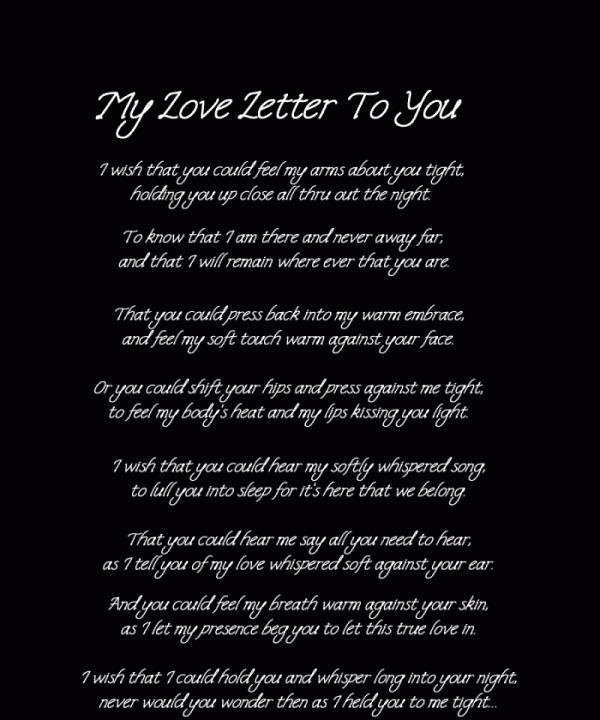 My Love Letter To You
I wish that you could feel my arms about you tight,
holding you up close all thru out the night.
To know that I am there and never away far,
and that I will remain where ever that you are.
That you could press back into my warm embrace,
and feel my soft touch warm against your face.
Or you could shift your hips and press against me tight,
to feel my body's heat and my lips kissing you light.
I wish that you could hear my softly whispered song,
to lull you into sleep for it's here that we belong.
That you could hear me say all you need to hear,
as I tell you of my love whispered soft against your ear.
And you could feel my breath warm against your skin,
as I let my presence beg you to let this true love in.
I wish that I could hold you and whisper long into your night,
never would you wonder then as I held you to me tight...